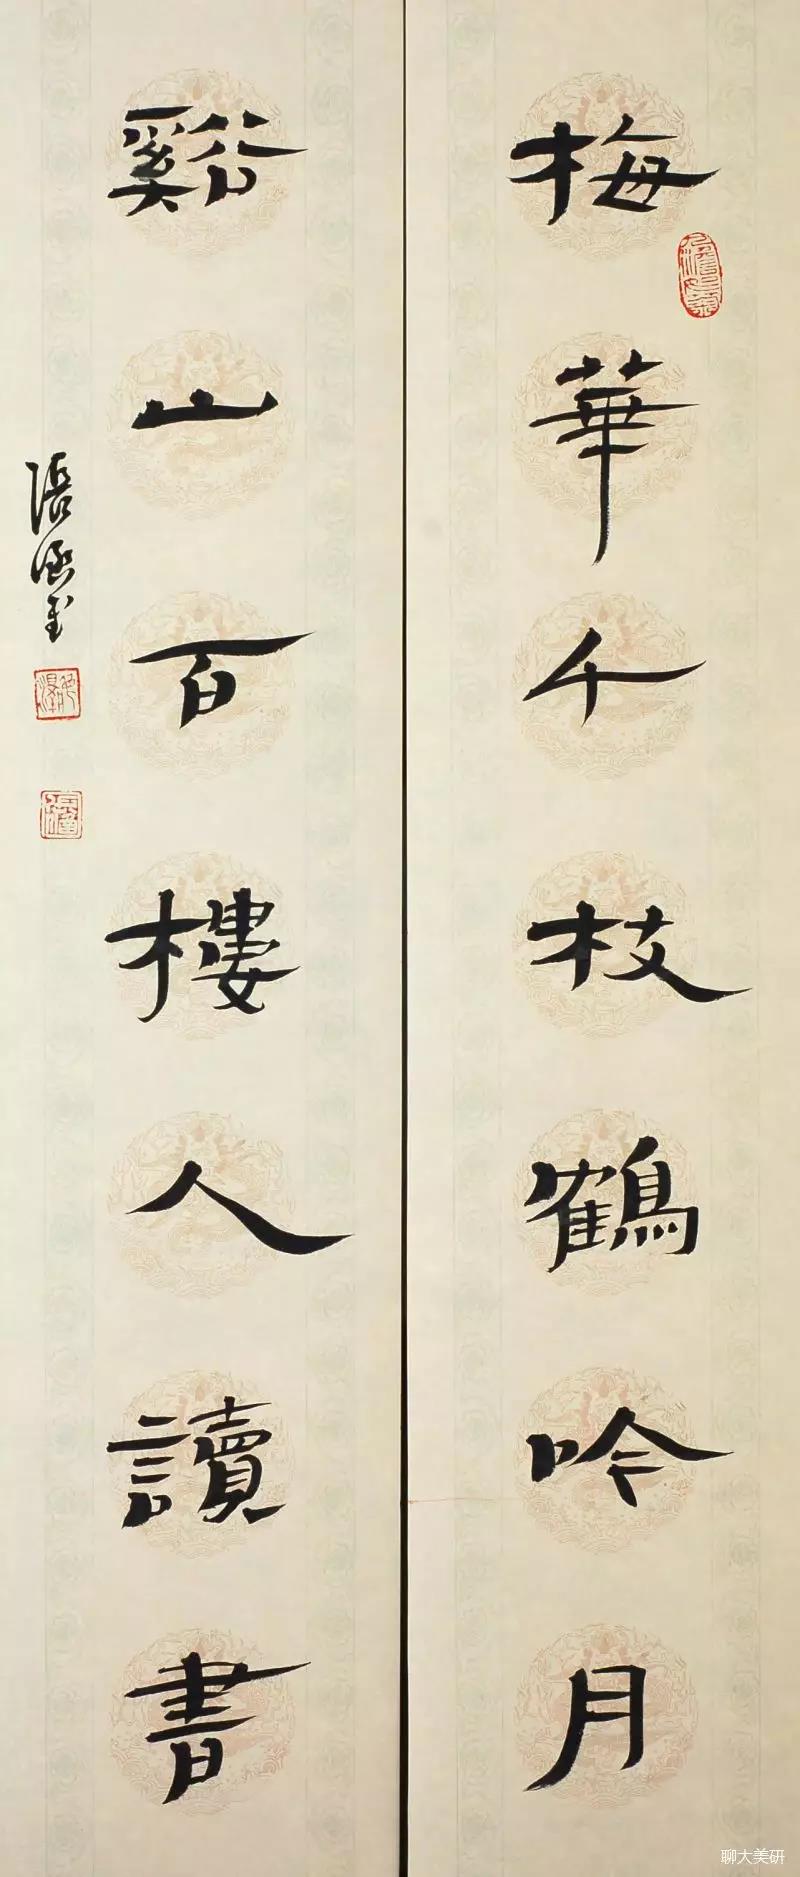 梅華千枝鶴吟月
谿山百樓人讀書
聊大美研